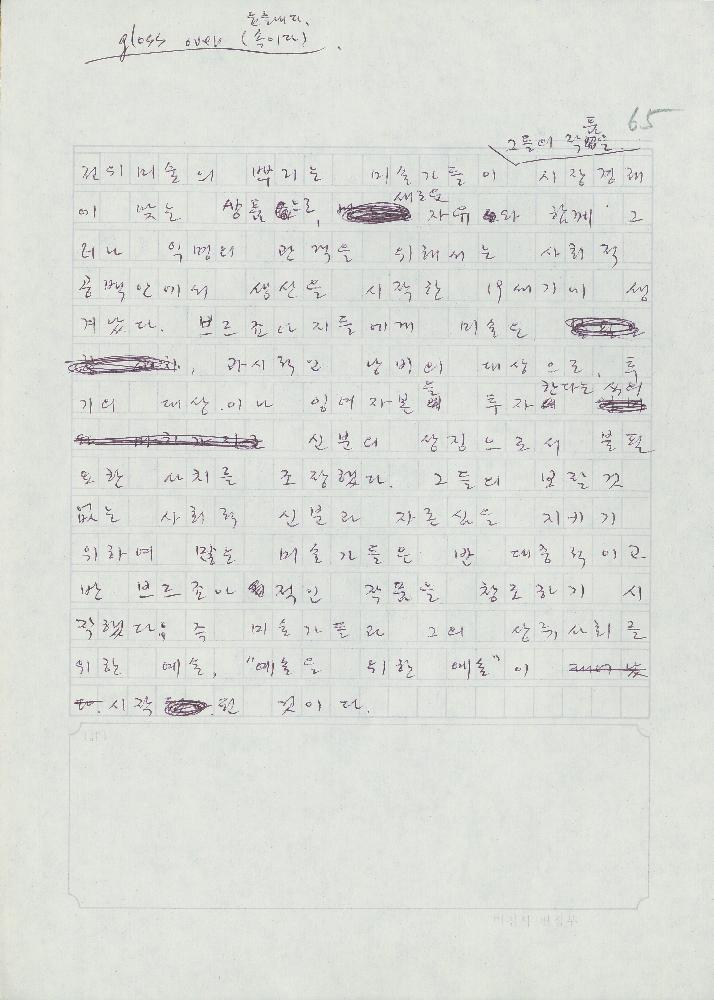 둘러대다.
gloss over (속이다).
65
그들의 작품을
전위미술의 뿌리는 미술가들이 시장경제
에 맞는 상품으로, 새로운 자유와 함께 그
러나 익명의 관객을 위해서는 사회적
공백안에서 생산을 시작한 19세기에 생
겨났다. 브르죠아지들에게 미술은
, 과시적인 낭비의 대상으로, 투
기의 대상.이나 잉여자본들 투자한다는 식의
신분의 상징으로서 불필
요한 사치를 조장했다. 그들의 보잘것
없는 사회적 신분과 자존심을 지키기
위하여 많은 미술가들은 반 대중적이고
반 브르죠아적인 작품을 창조하기 시
작했다. 즉 미술가들과 그의 상류사회를
위한 예술, "예술을 위한 예술"이
시작.된 것이다.